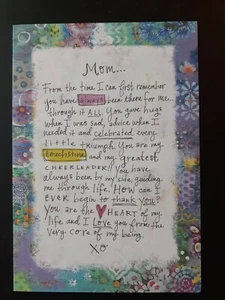 Mom...
From the time I can first remember
you have always been there for me
through it ALL. You gave hugs
when I was sad, advice when I
needed it and celebrated every
little triumph. You are my
touchstone and my greatest
CHEERLEADER!! You have
always been by my side, guiding
me through life. HOW can I
ever begin to thank you?
You are the HEART of my
life and I Love you from the
very core of my being.
XO